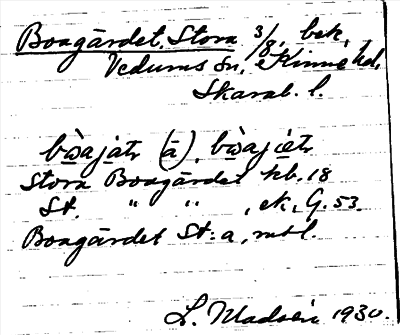 Boagärdet, Stora 3/8, bek,
Vedums sn, Kinne hd,
Skarab. l.
bòajätr (ä), bòajetr
Stora Boagärdet kb. 18
St. " " , ek, G. 53.
Boagärdet St:a, mtl.
L. Madsén 1930.